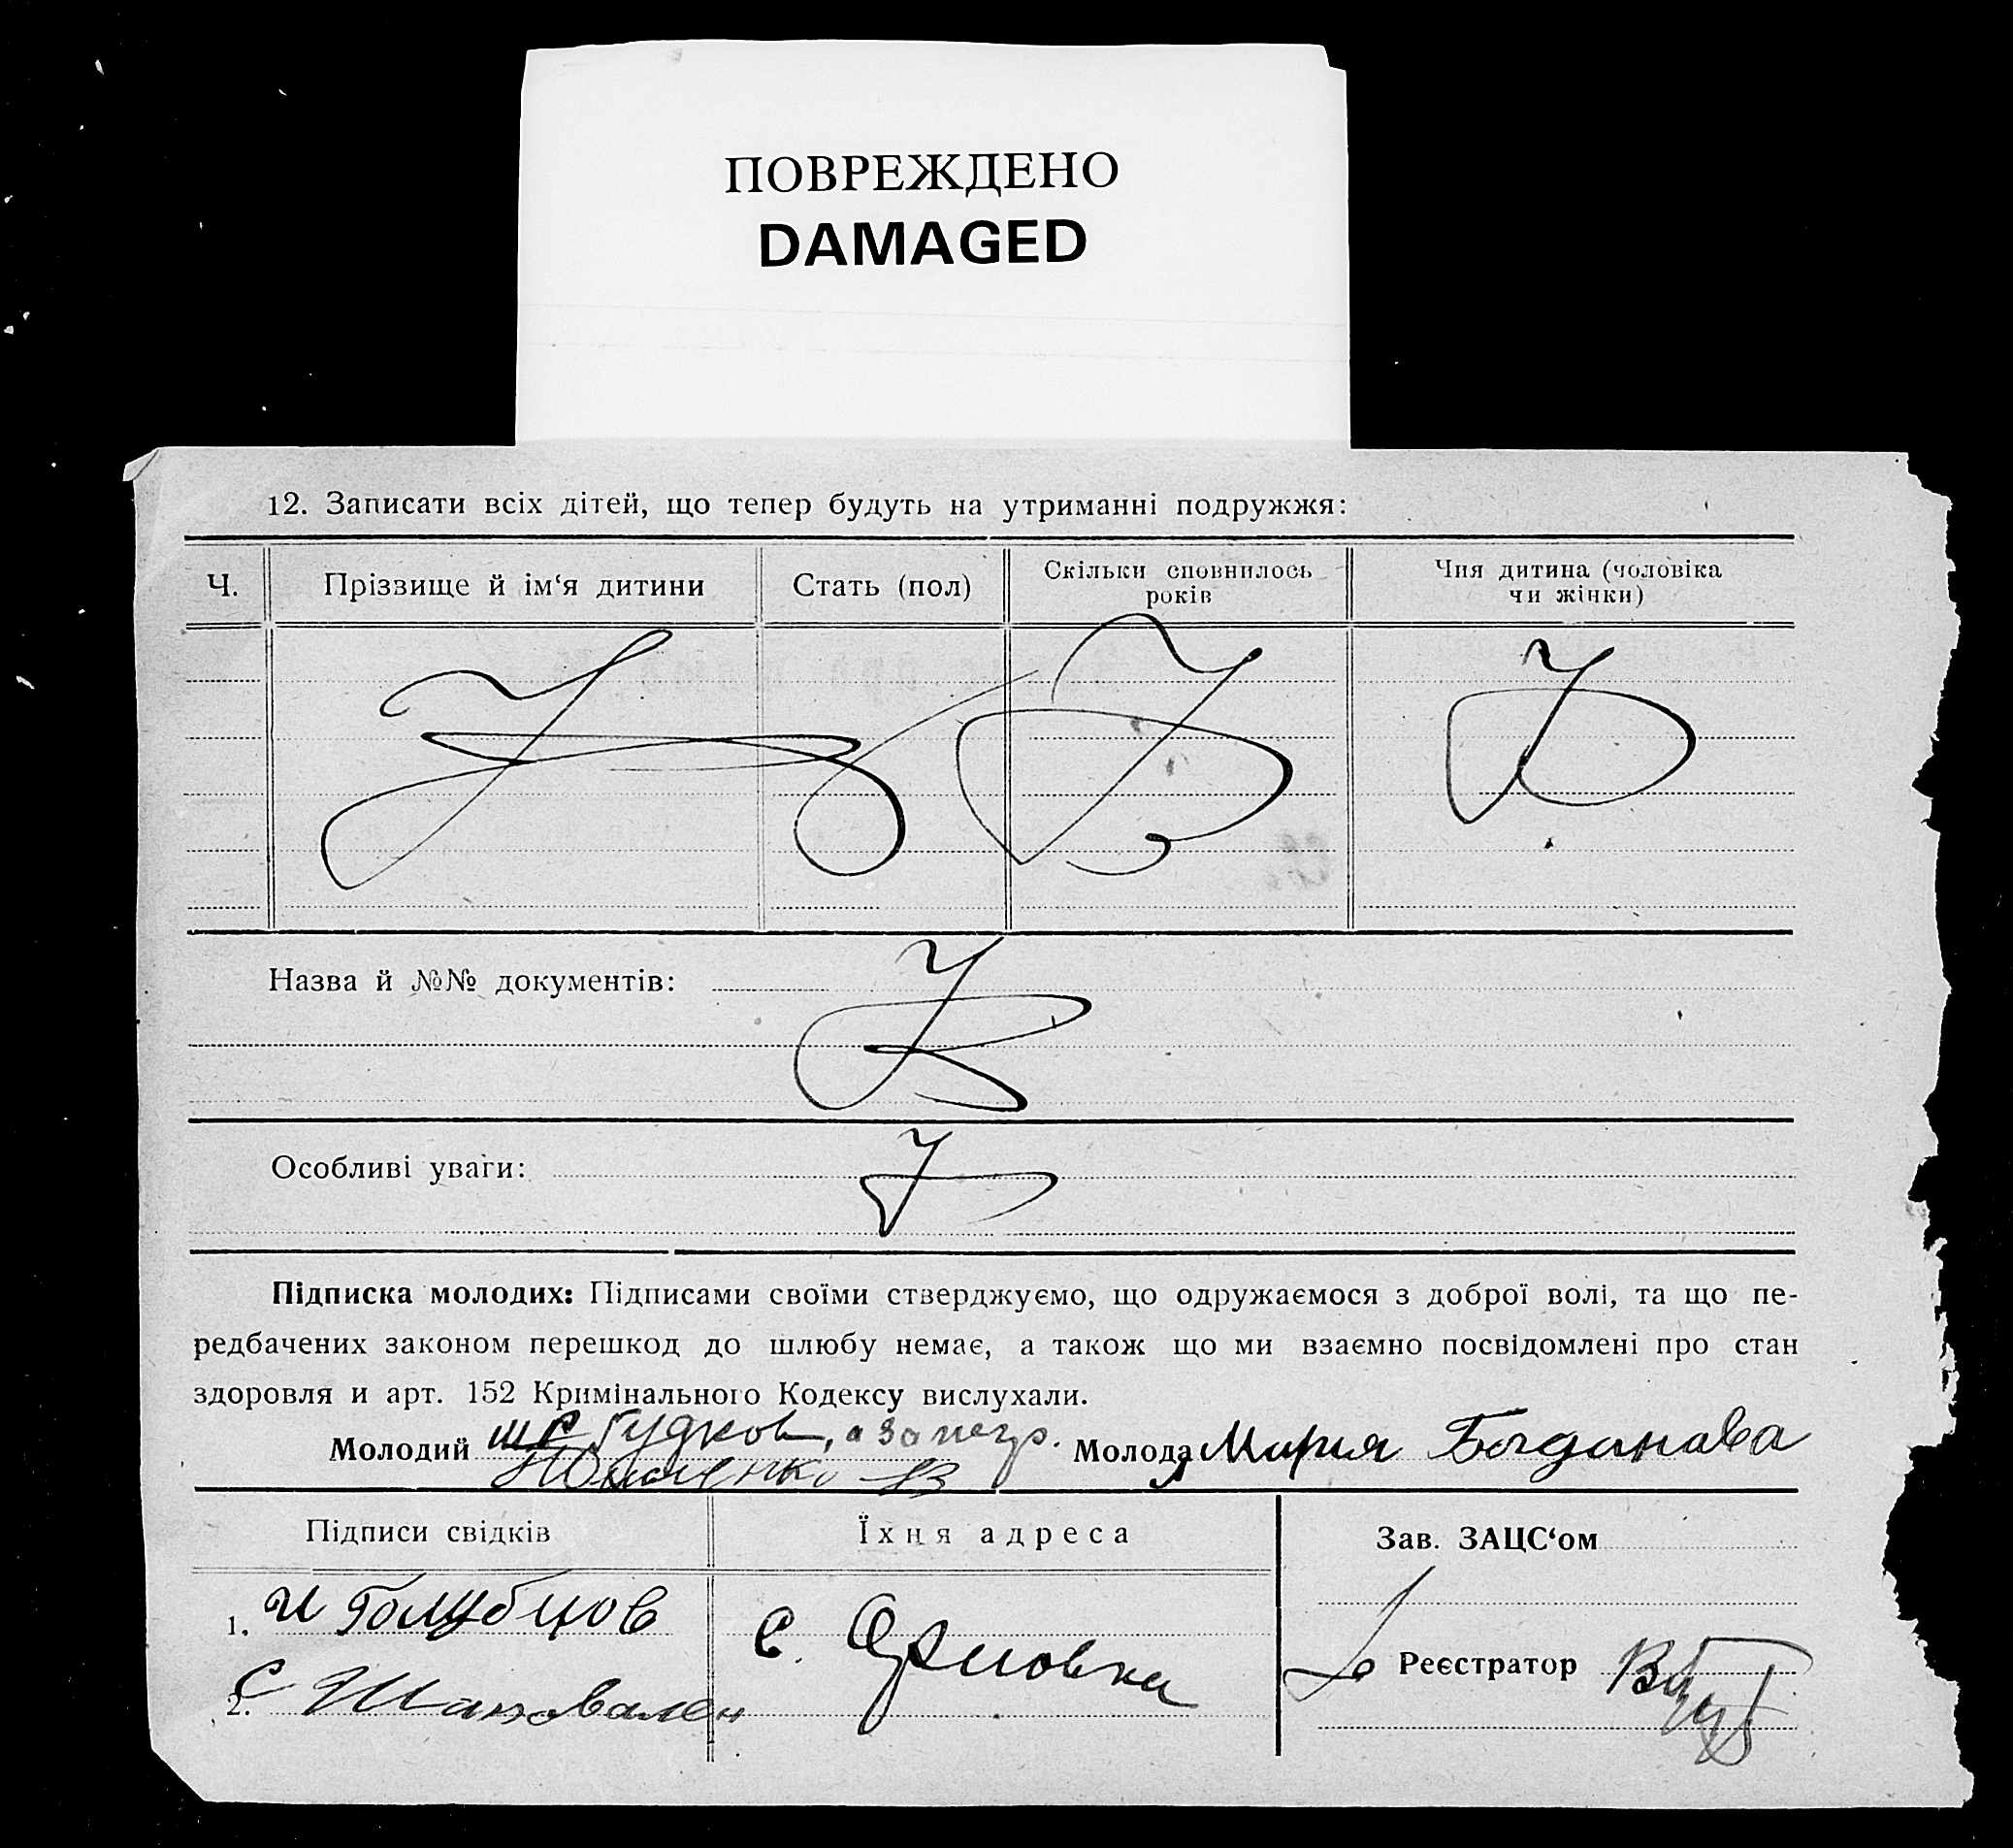 ПОВРЕЖДЕНО
DAMAGED
12. Записати всіх дітей, що тепер будуть на утриманні подружжя:
Ч.
Прізвище й ім‘я дитини
Стать (пол)
Скільки сповнилось
років
Чия дитина (чоловіка
чи жінки)
Назва й №№ документів:
Особливі уваги:
Підписка молодих: Підписами своїми стверджуємо, що одружаємося з доброї волі, та що пе-
редбачених законом перешкод до шлюбу немає, а також що ми взаємно посвідомлені про стан
здоровля и арт. 152 Кримінального Кодексу вислухали.
Молодий Гудков, а за негр. Молода Мария Богданава
Підписи свідків
Їхня адреса
Зав. ЗАЦС‘ом
1. И Голубцов
с.
2. С Шаповален
Реєстратор